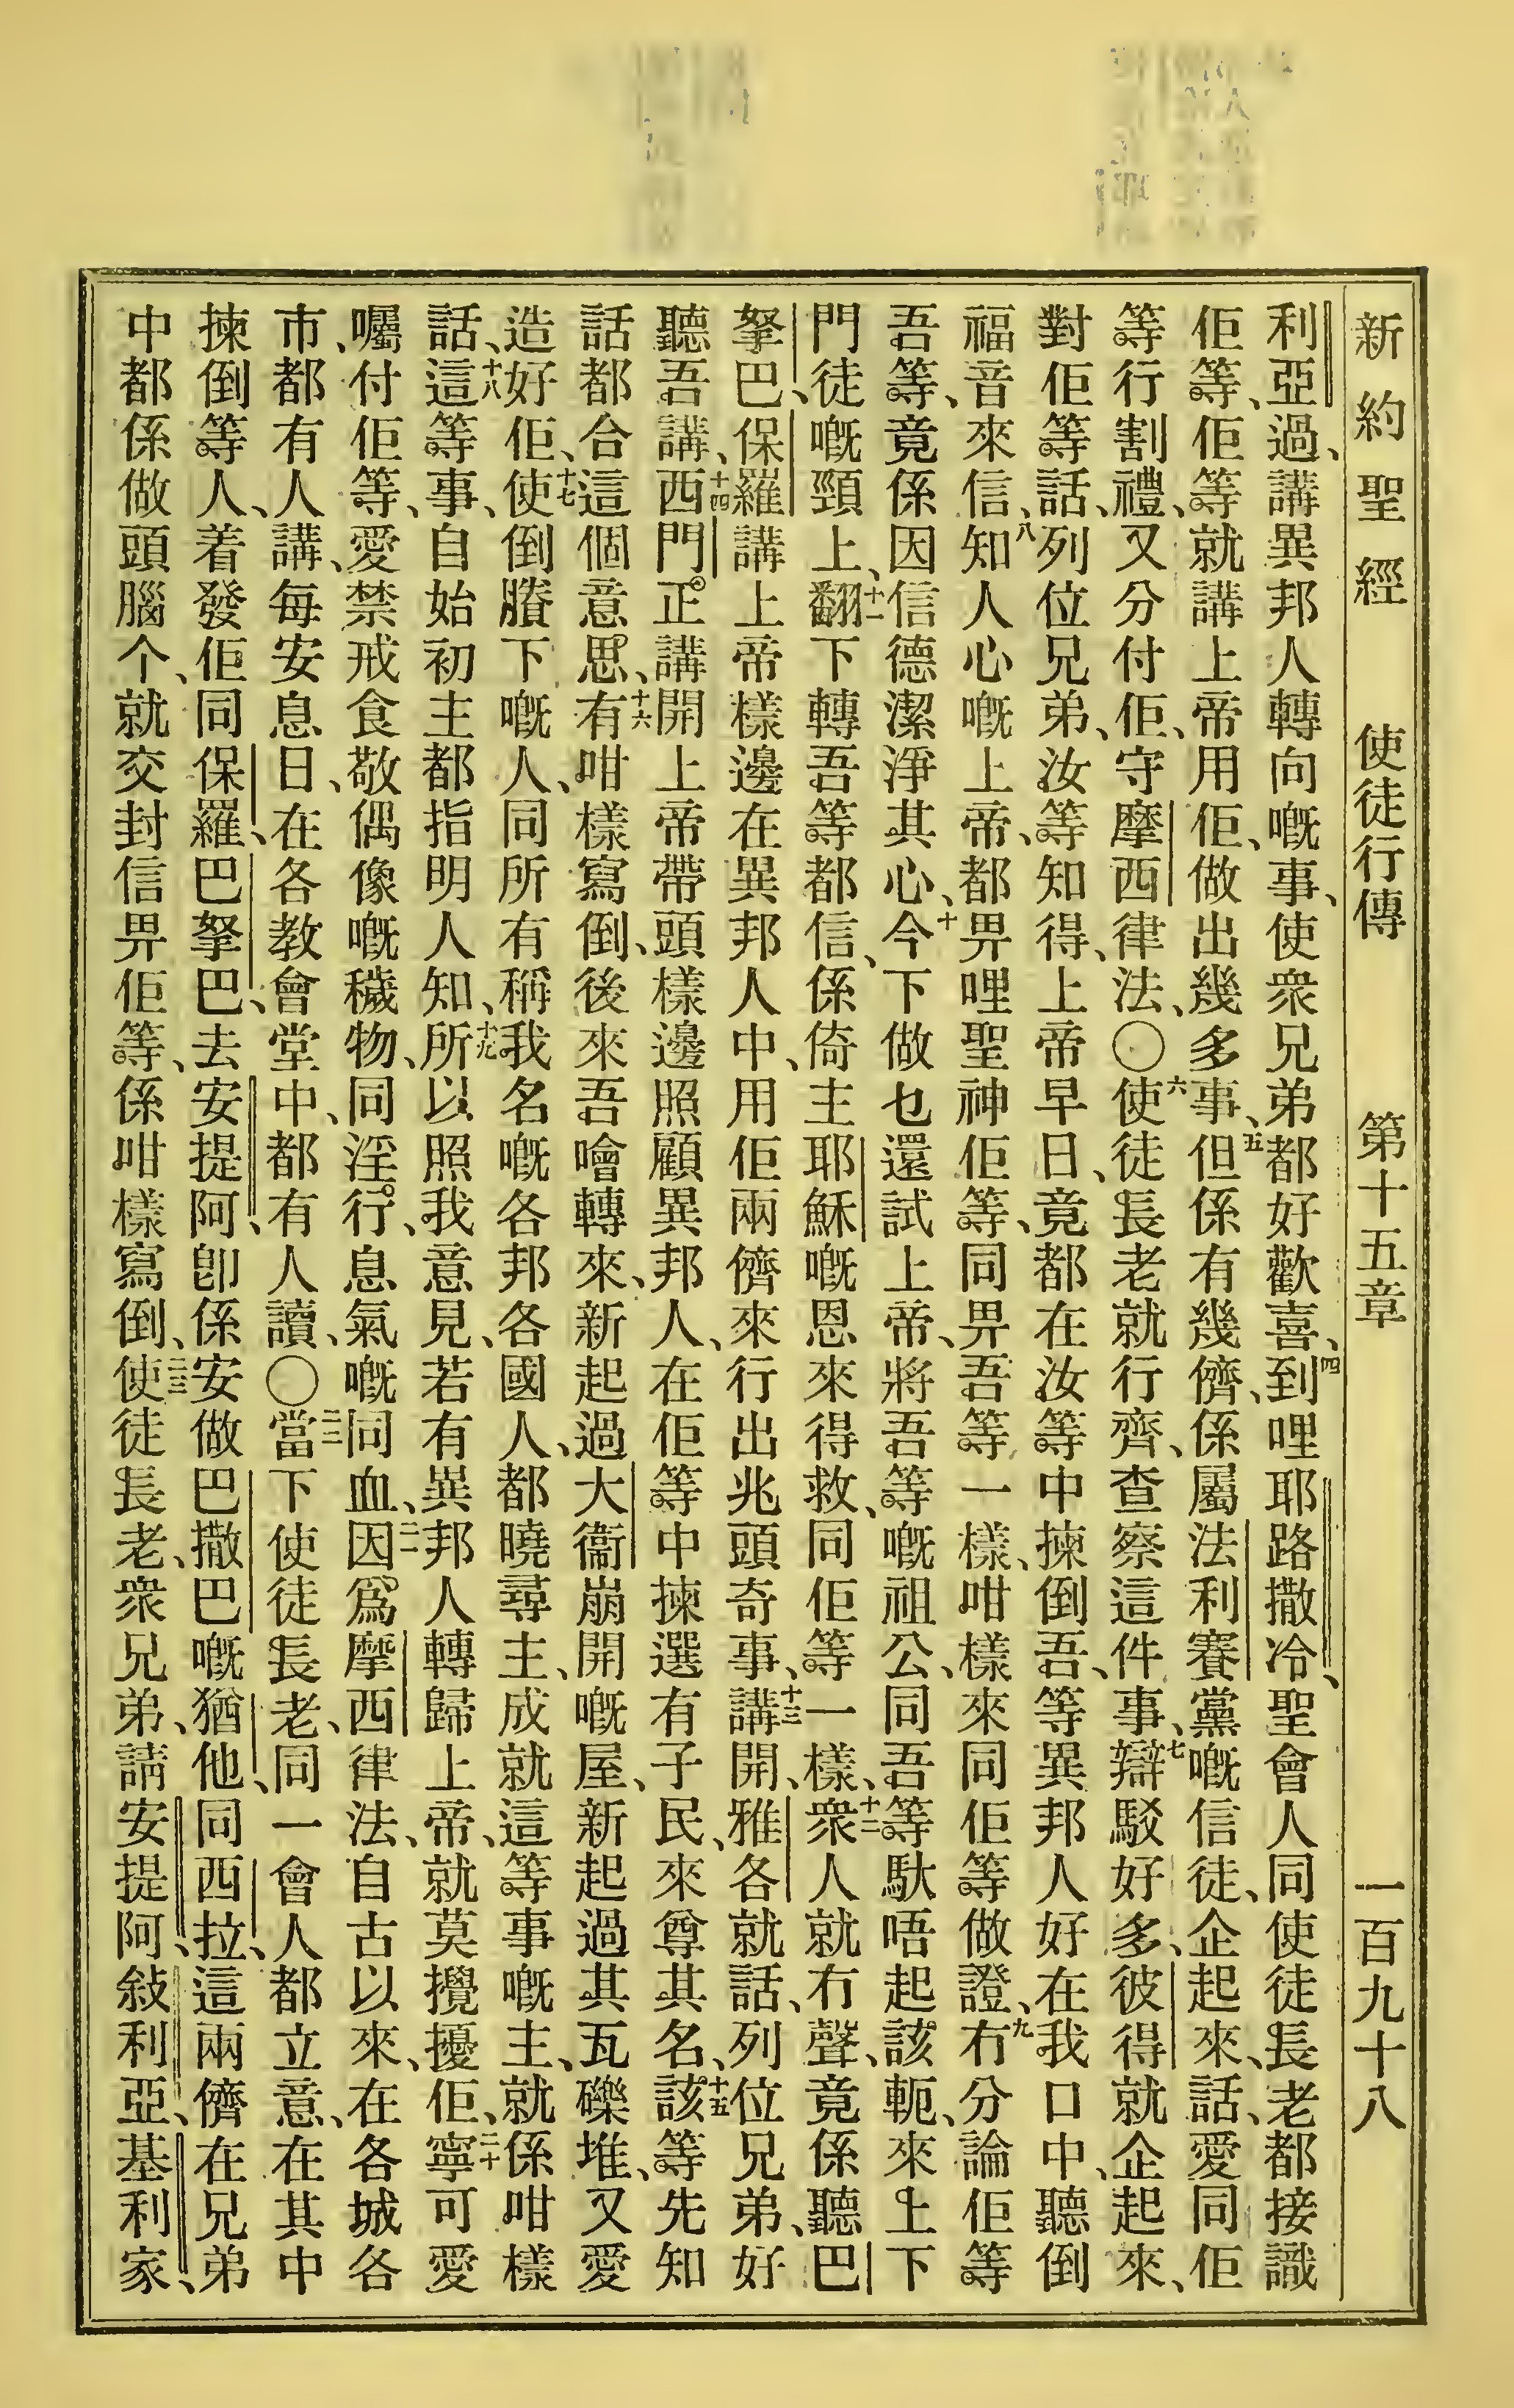 新約聖經 使徒行傳 第十五章 一百九十八
利亞過、講異邦人轉向嘅事、使衆兄弟都好歡喜、四到哩耶路撒冷、聖會人同使徒長老都接識
佢等、佢等就講上帝用佢、做出幾多事、五但係有幾儕、係屬法利賽黨嘅信徒、企起來、話、愛同佢
等行割禮、又分付佢、守摩西律法、〇六使徒長老就行齊、查察這件事、七辯駁好多、彼得就企起來、
對佢等話、列位兄弟、汝等知得、上帝早日、竟都在汝等中揀倒吾、等異邦人好在我口中、聽倒
福音來信、八知人心嘅上帝、都畀哩聖神佢等、同畀吾等一樣、咁樣來同佢等做證、九冇分論佢等
吾等、竟係因信德潔淨其心、十今下做乜還試上帝、將吾等嘅祖公、同吾等馱唔起該軛、來上下
門徒嘅頸上、十一翻下轉吾等都信、係倚主耶穌嘅恩來得救、同佢等一樣、十二衆人就冇聲、竟係聽巴
拏巴、保羅講上帝樣邊在異邦人中、用佢兩儕來行出兆頭奇事、十三講開、雅各就話、列位兄弟、好
聽吾講、十四西門正講開上帝帶頭樣邊照顧異邦人、在佢等中揀選有子民、來尊其名、十五該等先知
話都合這個意思、十六有咁樣寫倒、後來吾噲轉來、新起過大衞崩開嘅屋、新起過其瓦礫堆、又愛
造好佢、十七使倒賸下嘅人、同所有稱我名嘅各邦各國人、都曉尋主、成就這等事嘅主、就係咁樣
話、十八這等事、自始初主都指明人知、十九所以照我意見、若有異邦人轉歸上帝、就莫攪擾佢、二十寧可愛
囑付佢等、愛禁戒食敬偶像嘅穢物、同淫行、息氣嘅同血、二一因爲摩西律法、自古以來、在各城各
市、都有人講、每安息日、在各教會堂中、都有人讀、〇二二當下使徒長老、同一會人都立意、在其中
揀倒等人、着發佢同保羅、巴拏巴、去安提阿、卽係安做巴撒巴嘅猶他、同西拉、這兩儕在兄弟
中都係做頭腦个、就交封信畀佢等、係咁樣寫倒、二三使徒長老、衆兄弟、請安提阿、敍利亞、基利家、